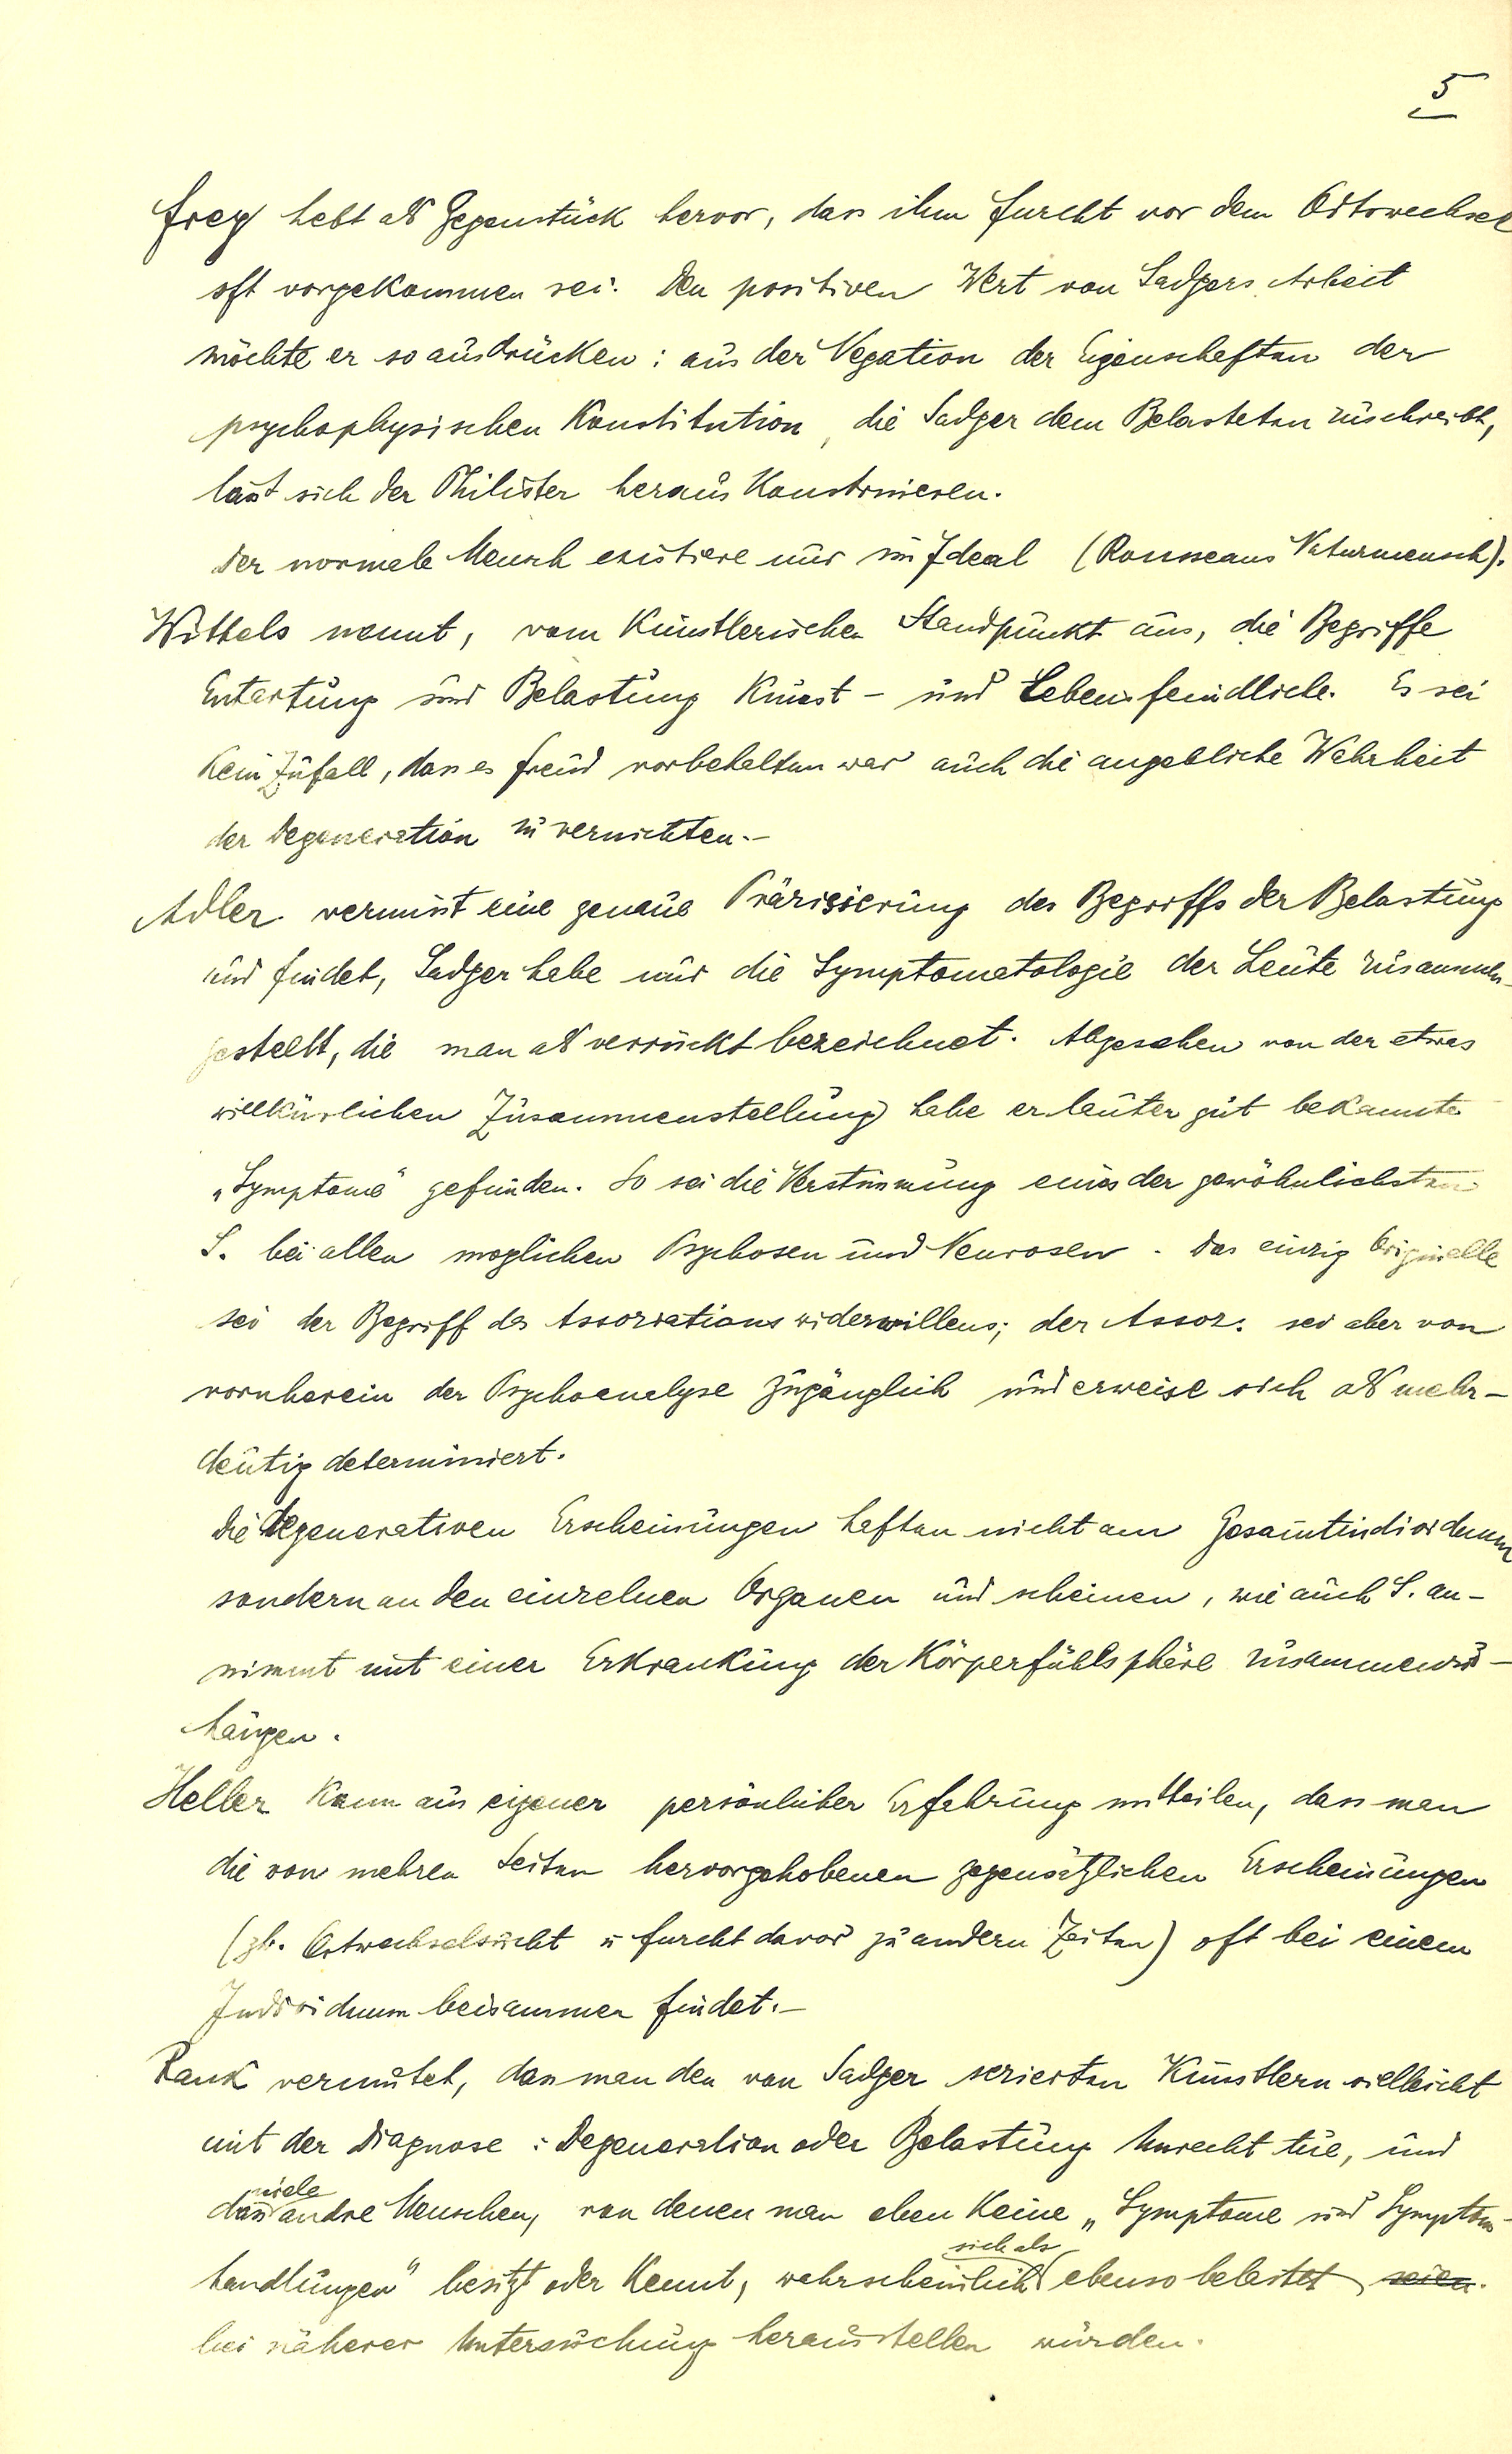 5
Frey hebt als Gegenstück hervor, dass ihm Furcht vor dem Ortswechsel
oft vorgekommen sei. Den positiven Wert von Sadgers Arbeit
möchte er so ausdrücken: aus der Negation der Eigenschaften der
psychophysischen Konstitution, die Sadger dem Belasteten zuschreibt,
lasst sich der Philister heraus Konstruieren.
Der normale Mensch existiere nur im Ideal (Rousseaus Naturmensch).
Wittels nennt, vom Künstlerischen Standpunkt aus, die Begriffe
Entartung und Belastung Kunst- und Lebensfeindliche. Es sei
Kein Zufall, dass es Freud vorbehalten war auch die angebliche Wahrheit
der Degeneration zu vernichten.-
Adler vermisst eine genaue Präzisierung des Begriffs der Belastung
und findet, Sadger habe nur die Symptomatologie der Leute zusammen-
gestellt, die man als verrückt bezeichnet. Abgesehen von der etwas
willkürlichen Zusammenstellung habe er lauter gut bekannte
„Symptome" gefunden. So sei die Verstimmung eines der gewöhnlichsten
S. bei allen moglichen Psychosen und Neurosen. Das einzig Originelle
sei der Begriff des Assoziationswiderwillens; der Assoz. sei aber von
vornherein der Psychoanalyse zugänglich und erweise sich als mehr-
deutig determiniert.
Die degenerativen Erscheinungen haften nicht am Gesamtindividuum
sondern an den einzelnen Organen und scheinen, wie auch S. an-
nimmt mit einer Erkrankung der Körperfühlsphäre zusammenzu-
hängen.
Heller Kann aus eigener persönlicher Erfahrung mitteilen, dass man
die von mehren Seiten hervorgehobenen gegensätzlichen Erscheinungen
(zb. Ortwechselsucht u Furcht davor zu andern Zeiten) oft bei einem
Individuum beisammen findet.-
Rank vermutet, dass man den von Sadger serierten Künstlern vielleicht
mit der Diagnose: Degeneration oder Belastung Unrecht tue, und
dass viele andre Menschen, von denen man eben Keine „Symptome und Symptom-
handlungen" besitzt oder Kennt, wahrscheinlich sich als ebenso belastet seien.
bei näherer Untersuchung herausstellen würden.